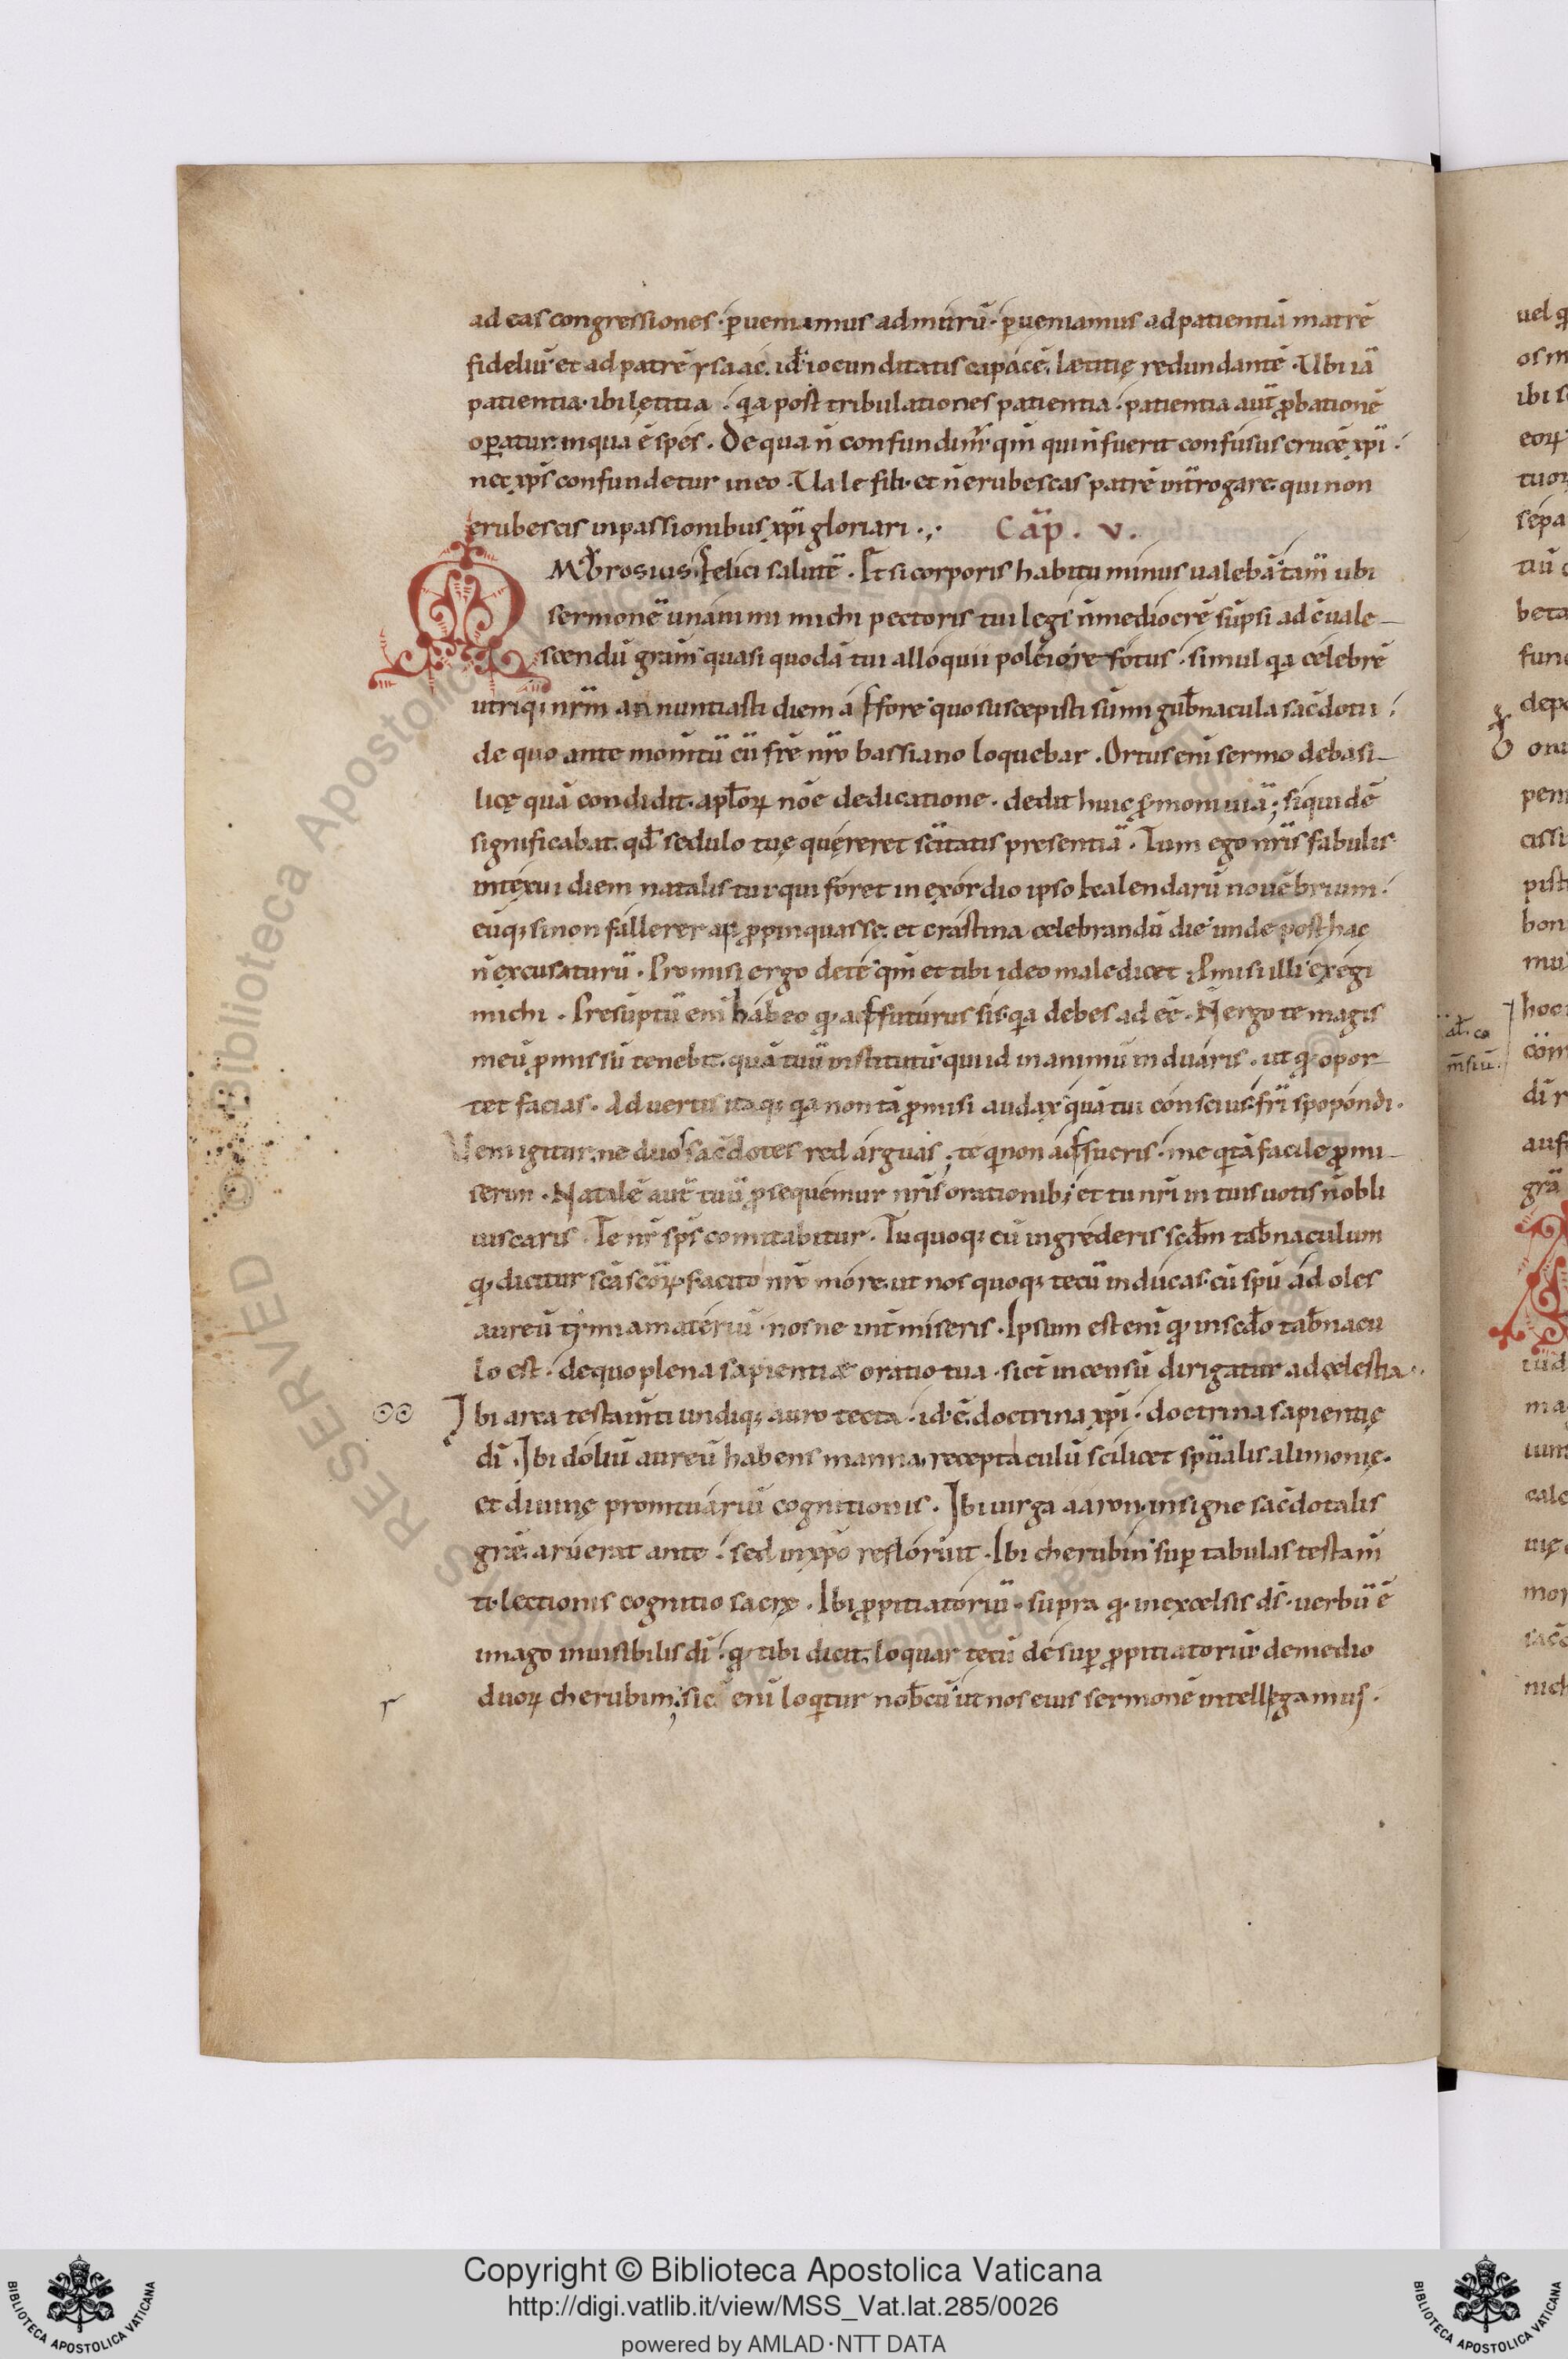 ad eas congressiones · ꝑueniamus ad murū · ꝑueniamus ad patientiā matrē
fideliū · et ad patrē ysaac . id ē iocunditatis capacē . lætitię redundantē · Ubi iā
patientia · ibi lętitia · qa post tribulationes patientia · patientia aut̄ ꝓbationē
oꝑatur · in qua ē spes . De qua n̄ confundimr̄ · qm̄ qui n̄ fuerit confusus crucē xp̄i ·
nec xp̄s confundetur in eo . Uale fili · et n̄ erubescas patrē int̄rogare · qui non
erubescis in passionibus xp̄i gloriari . Cap̄ . v .
AMbrosius felici salutē . Et si corporis habitu minus ualebā · tam̄ ubi
sermonē unanimi michi pectoris tui legi n̄ mediocrē sūpsi ad ēuale–
scendū gram̄ quasi quodā tui alloquii poleiore fotus · simul qa celebrē
utriq; nrm̄ annuntiasti diem affore · quo suscepisti sum̄i gub̄nacula sac̄dotii ·
de quo ante momtū cū frē nrō bassiano loquebar . Ortus eni sermo de basi–
licę quā condidit · apl̄oꝝ nōe dedicatione · dedit huic ẜmoni uiā ; siquidē
significabat · qd̄ sedulo tuę quęreret sc̄itatis presentiā . Tum ego nr̄is fabulis
intexui diem natalis tui qui foret in exordio ipso kalendarū nouēbrium ·
eūq; si non fallerer apꝓpinquasse · et crastina celebrandū die · unde posthac
n̄ excusaturū . Promisi ergo de te · qm̄ et tibi id eo male dicet · ꝓmisi illi · exegi
michi . Presūptū eni habeo qd̄ adfuturus sis · qa debes adēē . N̄ ergo te magis
meū ꝓmissū tenebit · quā tuū institutū · qui id in animū induaris · ut qd̄ opor–
tet facias . Aduertis itaq; qa non tā ꝓmisi audax · quā tui conscius fr̄i spopondi ·
Veni igitur · ne duos sac̄dotes redarguas ; te qi non adfueris · me qi tā facile ꝓmi–
serim . Natalē aut̄ tuū ꝓsequemur nr̄is orationib; et tu nr̄i in tuis uotis n̄ obli
uiscaris . Te nr̄ sp̄s comitabitur . Tu quoq; cū ingrederis sed̄m tab̄naculum
qd̄ dicitur sc̄a sc̄oꝝ · facito nrō more · ut nos quoq; tecū inducas · cū sp̄u adoles
aureū tymiamateriū · nos ne int̄miseris . Ipsum est eni qd̄ in sed̄o tab̄nacu
lo est · de quo plena sapientiæ oratio tua · sic̄t incensū dirigatur ad cęlestia ·
Ibi arca testam̄ti undiq; auro tecta · id · ē · doctrina xp̄i · doctrina sapientię
dī . Ibi doliū aureū habens manna · receptaculū scilicet sp̄ualis alimonię ·
et diuinę promtuariū cognitionis . Ibi uirga aaron · insigne sac̄dotalis
grē · aruerat ante · sed in xp̄o refloruit . Ibi cherubin suꝑ tabulas testam̄
ti · lectionis cognitio sacrę . Ibi ꝓpitiatoriū · supra qd̄ in excelsis dī · uerbū ē
imago inuisibilis dī · qd̄ tibi dicit · loquar tecū desuꝑ ꝓpitiatoriū · de medio
duoꝝ cherubim ; sic eni loqitur nob̄cū · ut nos eius sermonē intellegamus .
r
al̄ . co
m̄siū .
Copyright © Biblioteca Apostolica Vaticana
http://digi.vatlib.it/view/MSS_Vat.lat.285/0026
powered by AMLAD·NTT DATA
BIBLIOTECA APOSTOLICA VATICANA
BIBLIOTECA APOSTOLICA VATICANA